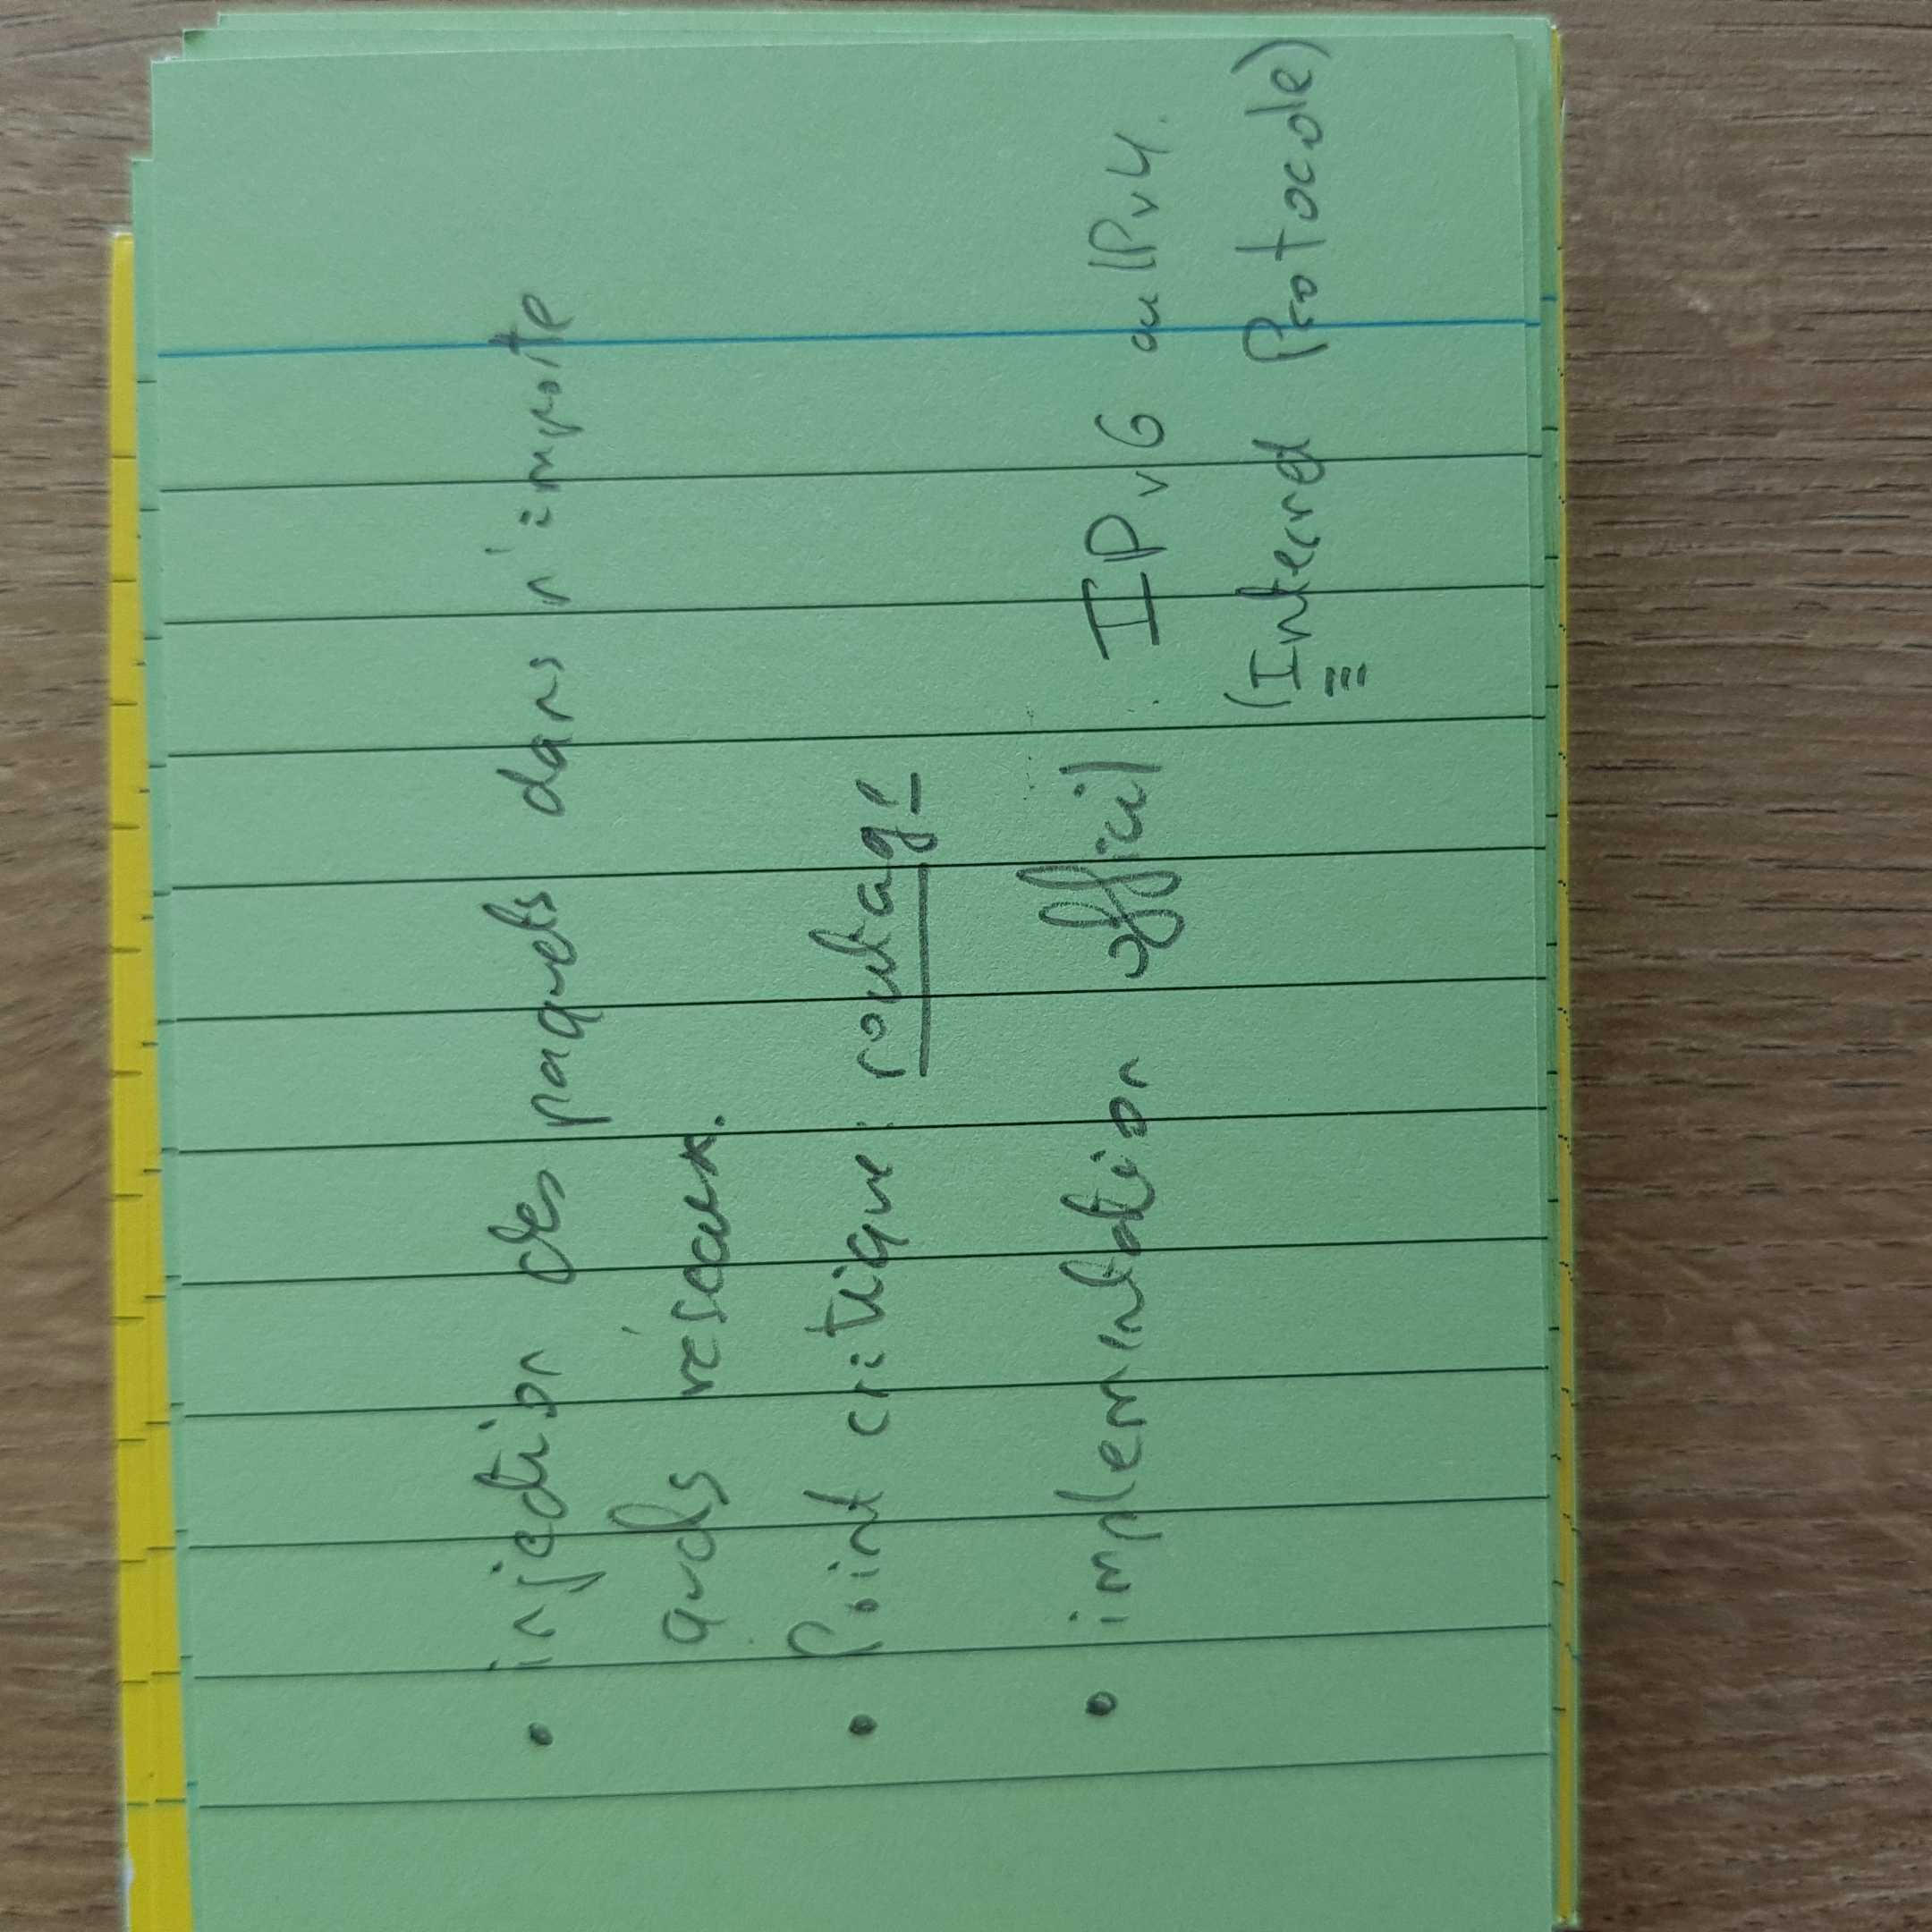 • injection des paquets dans n'importe
quels réseaux.
• Point critique : routage
• implementation officiel : IPv6 ou IPv4.
(Internet Protocole)